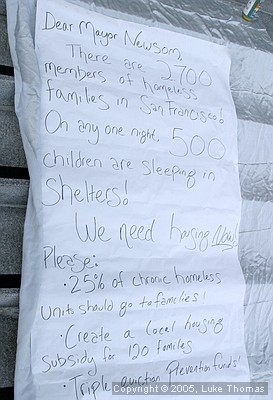 Dear Mayor Newsom,
There are 2,700
members of homeless
families in San Francisco!
On any one night, 500
children are sleeping in
shelters!
We need housing Now!
Please:
· 25% of chronic homeless
units should go to families!
· Create a local housing
subsidy for 120 families
· Triple eviction Prevention funds!
Copyright © 2005, Luke Thomas